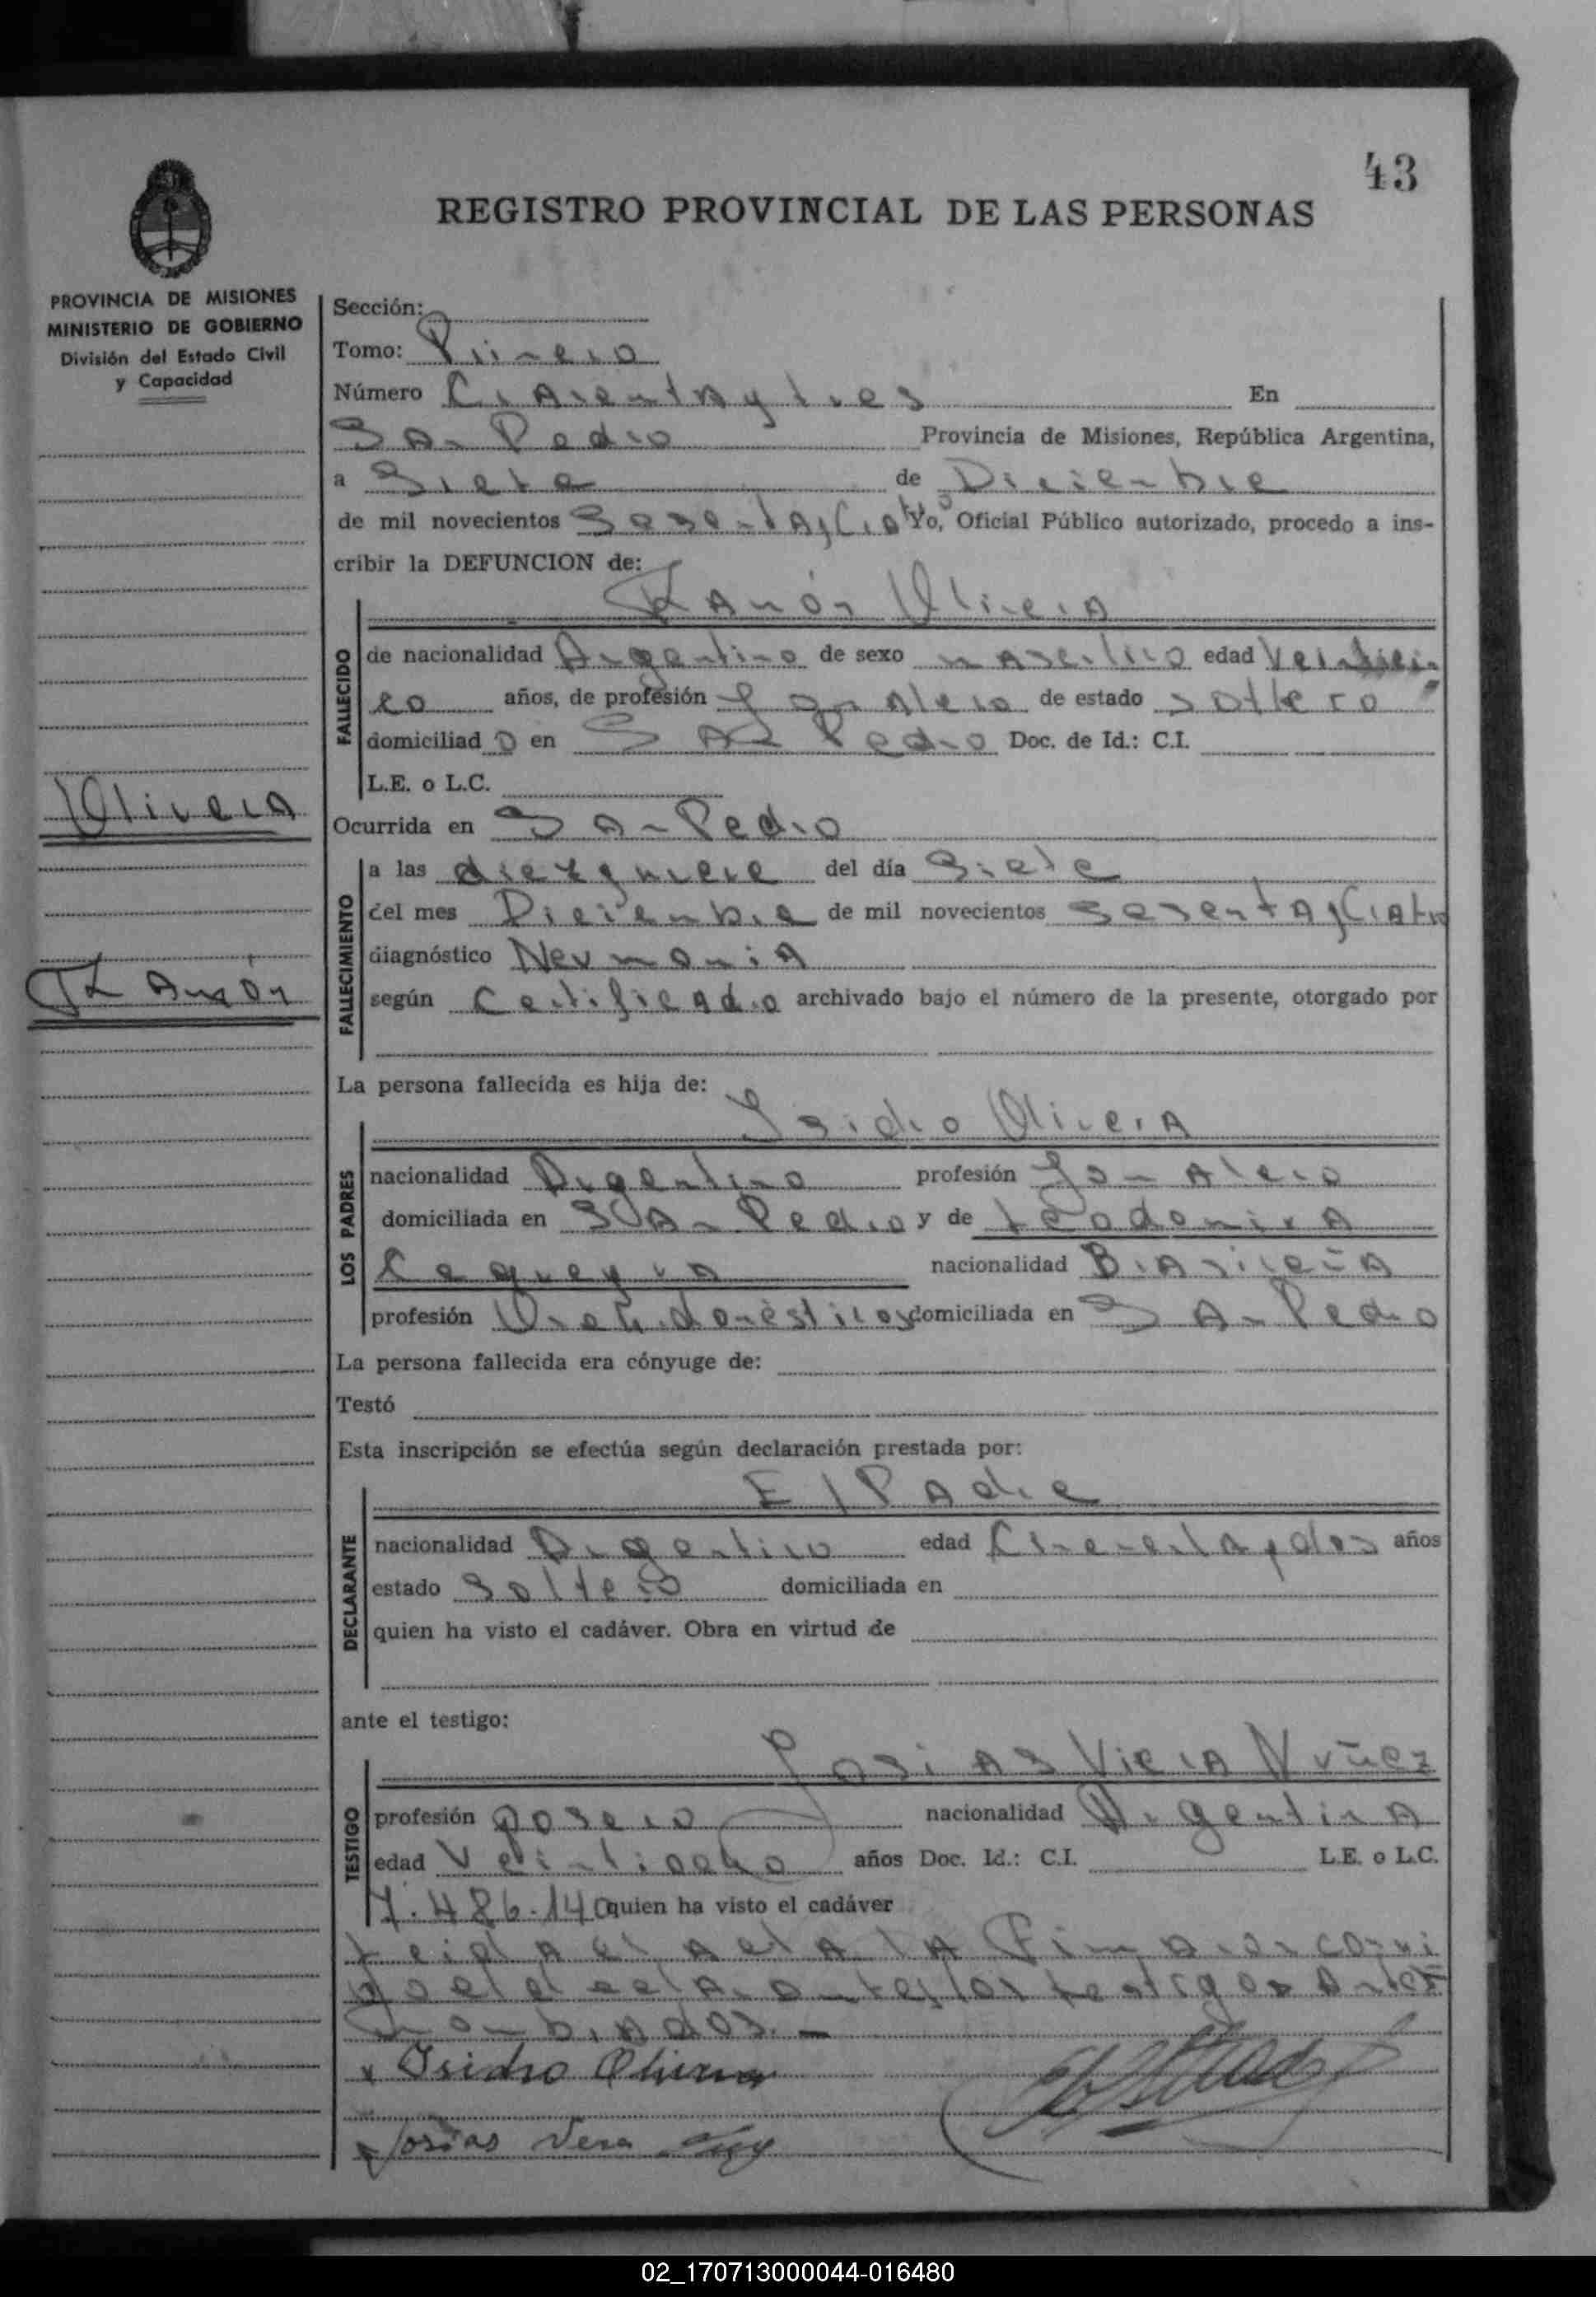 43
REGISTRO PROVINCIAL DE LAS PERSONAS
PROVINCIA DE MISIONES
MINISTERIO DE GOBIERNO
División del Estado Civil
y Capacidad
Olivera
Ramón
Sección:
Tomo: Primero
Número Cuarenta y tres En
San Pedro Provincia de Misiones, República Argentina,
a Siete de Diciembre
de mil novecientos Sesenta y Cuatro Yo, Oficial Público autorizado, procedo a ins-
cribir la DEFUNCION de:
Ramón Olivera
FALLECIDO
de nacionalidad Argentino de sexo masculino edad Veinticin
co años, de profesión Jornalero de estado soltero
domiciliad o en San Pedro Doc. de Id.: C.I.
L.E. o L.C.
Ocurrida en San Pedro
FALLECIMIENTO
a las diez y nueve del día Siete
del mes Diciembre de mil novecientos Sesenta y Cuatro
diagnóstico Neumonia
según Certificado archivado bajo el número de la presente, otorgado por
La persona fallecida es hija de:
Isidro Olivera
LOS PADRES
nacionalidad Argentino profesión Jornalero
domiciliada en San Pedro y de
nacionalidad Brasileña
profesión domiciliada en San Pedro
La persona fallecida era cónyuge de:
Testó
Esta inscripción se efectúa según declaración prestada por:
El Padre
DECLARANTE
nacionalidad Argentino edad Cincuenta y dos años
estado Soltero domiciliada en
quien ha visto el cadáver. Obra en virtud de
ante el testigo:
Josias Viera Nuñez
TESTIGO
profesión nacionalidad Argentina
edad Veintiocho años Doc. Id.: C.I. L.E. o L.C.
7.486.140 quien ha visto el cadáver
Leida el acta la Firman conmi
go el declarante y los testigos Ante
nombrados.-
x Isidro Olivera
x Josias Vera
02_170713000044-016480